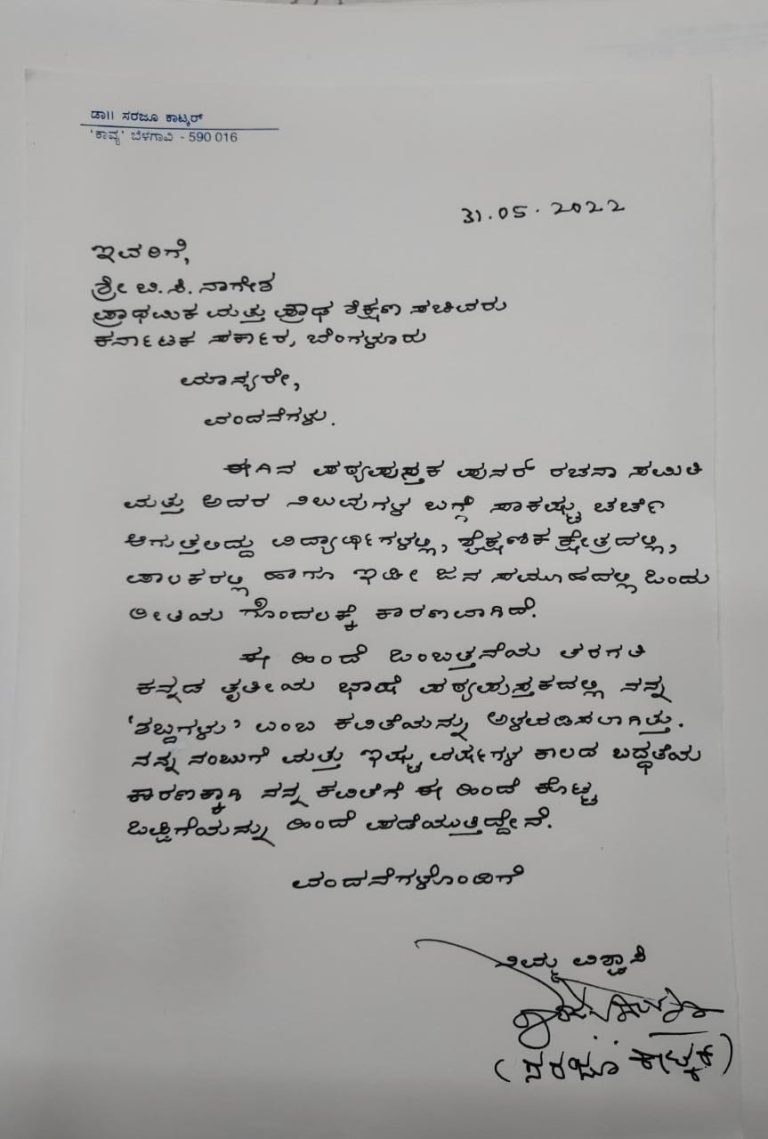 ಡಾ।। ಸರಜೂ ಕಾಟ್ಕರ್
'ಕಾವ್ಯ' ಬೆಳಗಾವಿ - 590 016
31.05.2022
ಇವರಿಗೆ,
ಶ್ರೀ ಬಿ.ಸಿ. ನಾಗೇಶ
ಪ್ರಾಥಮಿಕ ಮತ್ತು ಪ್ರೌಢ ಶಿಕ್ಷಣ ಸಚಿವರು
ಕರ್ನಾಟಕ ಸರ್ಕಾರ, ಬೆಂಗಳೂರು
ಮಾನ್ಯರೇ,
ವಂದನೆಗಳು.
ಈಗಿನ ಪಠ್ಯಪುಸ್ತಕ ಪುನರ್ ರಚನಾ ಸಮಿತಿ
ಮತ್ತು ಅದರ ನಿಲುವುಗಳ ಬಗ್ಗೆ ಸಾಕಷ್ಟು ಚರ್ಚೆ
ಆಗುತ್ತಲಿದ್ದು ವಿದ್ಯಾರ್ಥಿಗಳಲ್ಲಿ, ಶೈಕ್ಷಣಿಕ ಕ್ಷೇತ್ರದಲ್ಲಿ,
ಪಾಲಕರಲ್ಲಿ ಹಾಗೂ ಇಡೀ ಜನ ಸಮೂಹದಲ್ಲಿ ಒಂದು
ರೀತಿಯ ಗೊಂದಲಕ್ಕೆ ಕಾರಣವಾಗಿದೆ.
ಈ ಹಿಂದೆ ಒಂಬತ್ತನೆಯ ತರಗತಿ
ಕನ್ನಡ ತೃತೀಯ ಭಾಷೆ ಪಠ್ಯಪುಸ್ತಕದಲ್ಲಿ ನನ್ನ
'ಶಬ್ದಗಳು' ಎಂಬ ಕವಿತೆಯನ್ನು ಅಳವಡಿಸಲಾಗಿತ್ತು.
ನನ್ನ ನಂಬುಗೆ ಮತ್ತು ಇಷ್ಟು ವರ್ಷಗಳ ಕಾಲದ ಬದ್ಧತೆಯ
ಕಾರಣಕ್ಕಾಗಿ ನನ್ನ ಕವಿತೆಗೆ ಈ ಹಿಂದೆ ಕೊಟ್ಟ
ಒಪ್ಪಿಗೆಯನ್ನು ಹಿಂದೆ ಪಡೆಯುತ್ತಿದ್ದೇನೆ.
ವಂದನೆಗಳೊಂದಿಗೆ
ನಿಮ್ಮ ವಿಶ್ವಾಸಿ
(ಸರಜೂ ಕಾಟ್ಕರ)